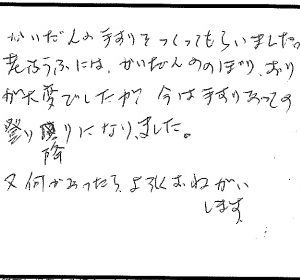 かいだんの手すりをつくってもらいました。
老夫うふには、かいだんののぼり、おり
が大変でしたが 今は手すりあっての
登り降りになりました。
又何かあったら、よろしくおねがい
します